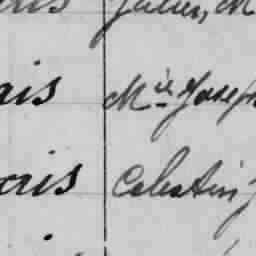 Julien, M
ais Mie Joseph
ais Celestin